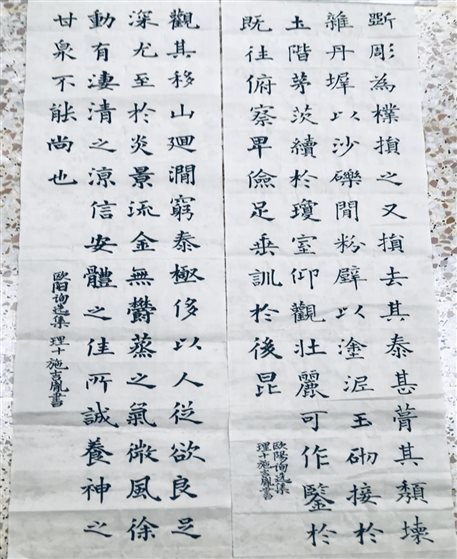 斲彫為樸損之又損去其泰甚葺其頹壞
雜丹墀以沙礫閒粉壁以塗泥玉砌接於
土階茅茨續於瓊室仰觀壯麗可作鑒於
既往俯察卑儉足垂訓於後昆
歐陽詢選集
理十施吉鳳書
觀其移山迴澗窮泰極侈以人從欲良足
深尤至於炎景流金無鬱蒸之氣微風徐
動有淒清之涼信安體之佳所誠養神之
甘泉不能尚也
歐陽詢選集 理十施吉鳳書